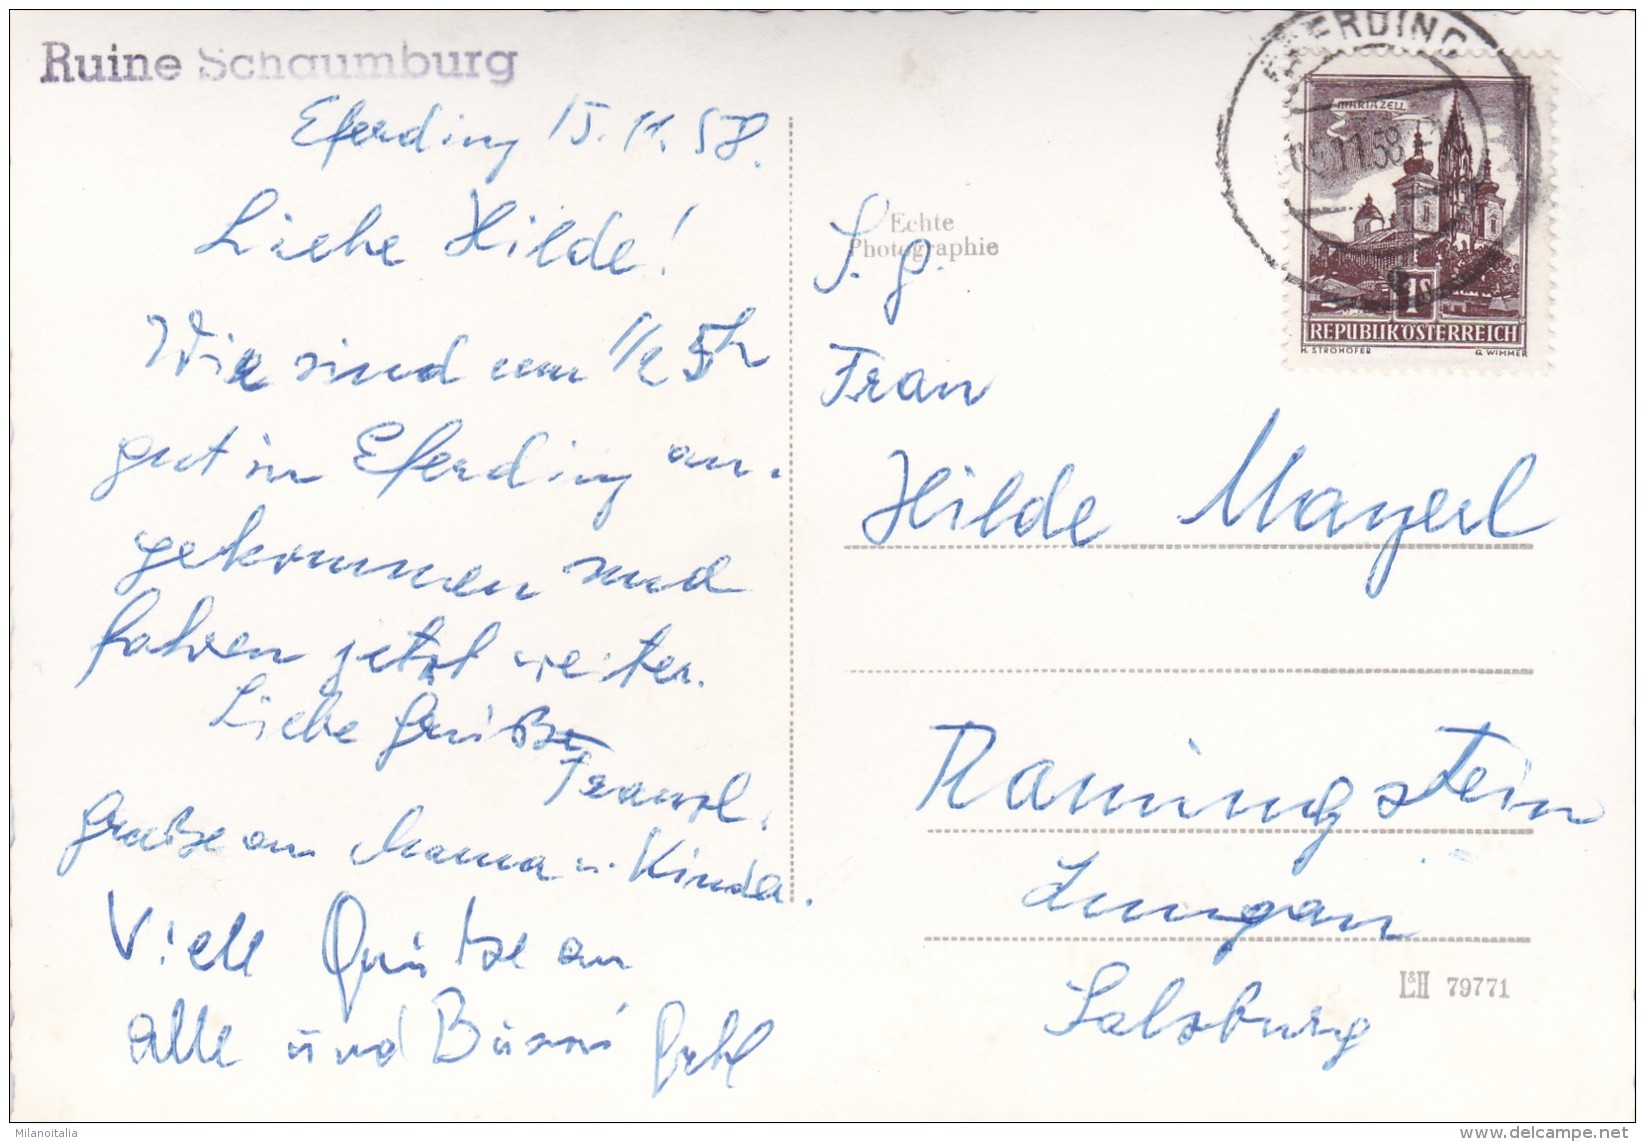 Ruine Schaumburg
Eferding 15.11.58.
Liebe Hilde!
Wir sind um 1/2 5h
gut in Eferding an-
gekommen und
fahren jetzt weiter.
Liebe Grüße
Franzl.
Grüße an Mama u. Kinder.
Viele Grüße an
alle und Bussi
Echte
Photographie
S. g.
Frau
Hilde Mayerl
Ramingstein
Lungau
Salzburg
L&H 79771
EFERDING
11.58
MARIAZELL
1S
REPUBLIK ÖSTERREICH
H. STROHOFER G. WIMMER
Milanoitalia
delcampe.net